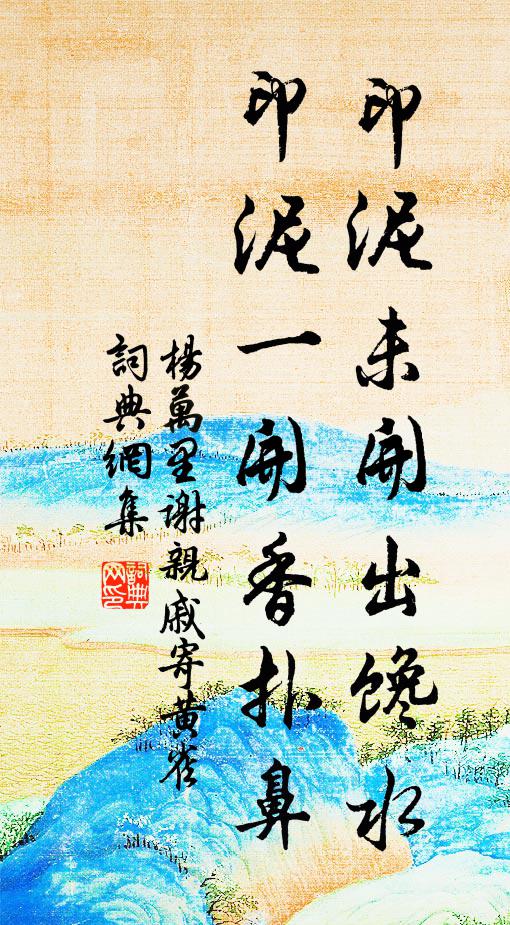 印泥未開出馋水
印泥一開香扑鼻
楊萬里谢親戚寄黄雀
詞典網集
詞典网印